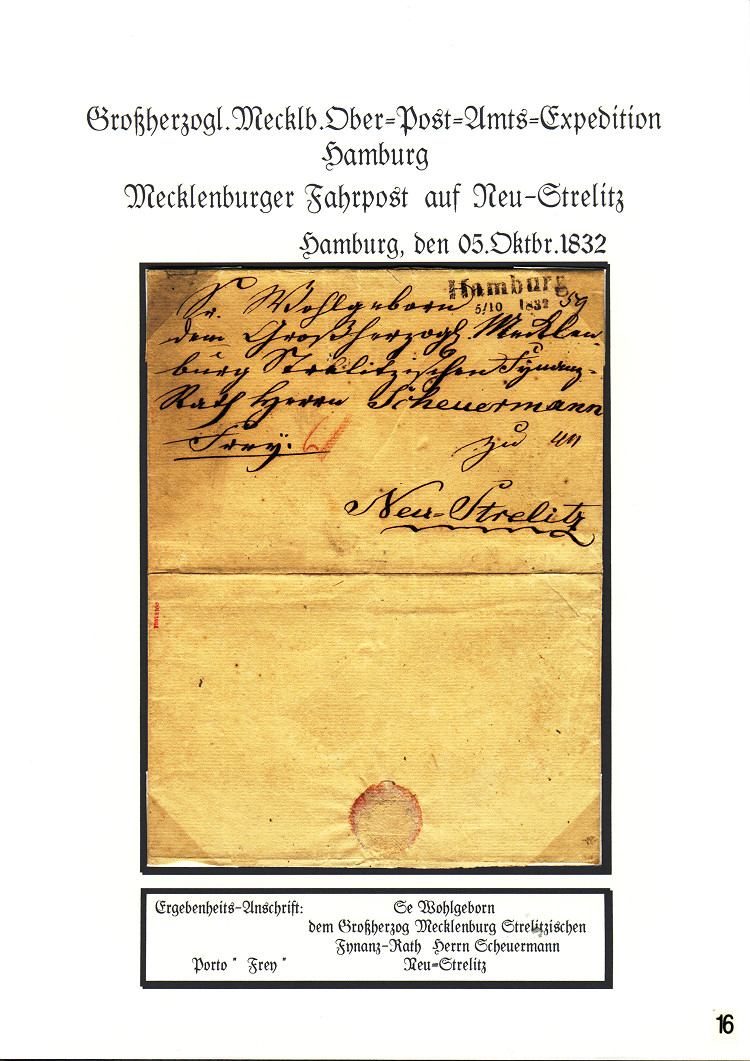 Großherzogl.Mecklb.Ober=Post=Amts=Expedition
Hamburg
Mecklenburger Fahrpost auf Neu-Strelitz
Hamburg, den 05.Oktbr.1832
Hamburg
5/10 1832
Sr. Wohlgeborn 59
dem Großherzogl. Mecklen-
burg Strelitzischen Fynanz-
Rath Herrn Scheuermann
Frey. zu
Neu=Strelitz
Ergebenheits-Anschrift: Se Wohlgeborn
dem Großherzog Mecklenburg Strelitzischen
Fynanz-Rath Herrn Scheuermann
Porto " Frey " Neu=Strelitz
16